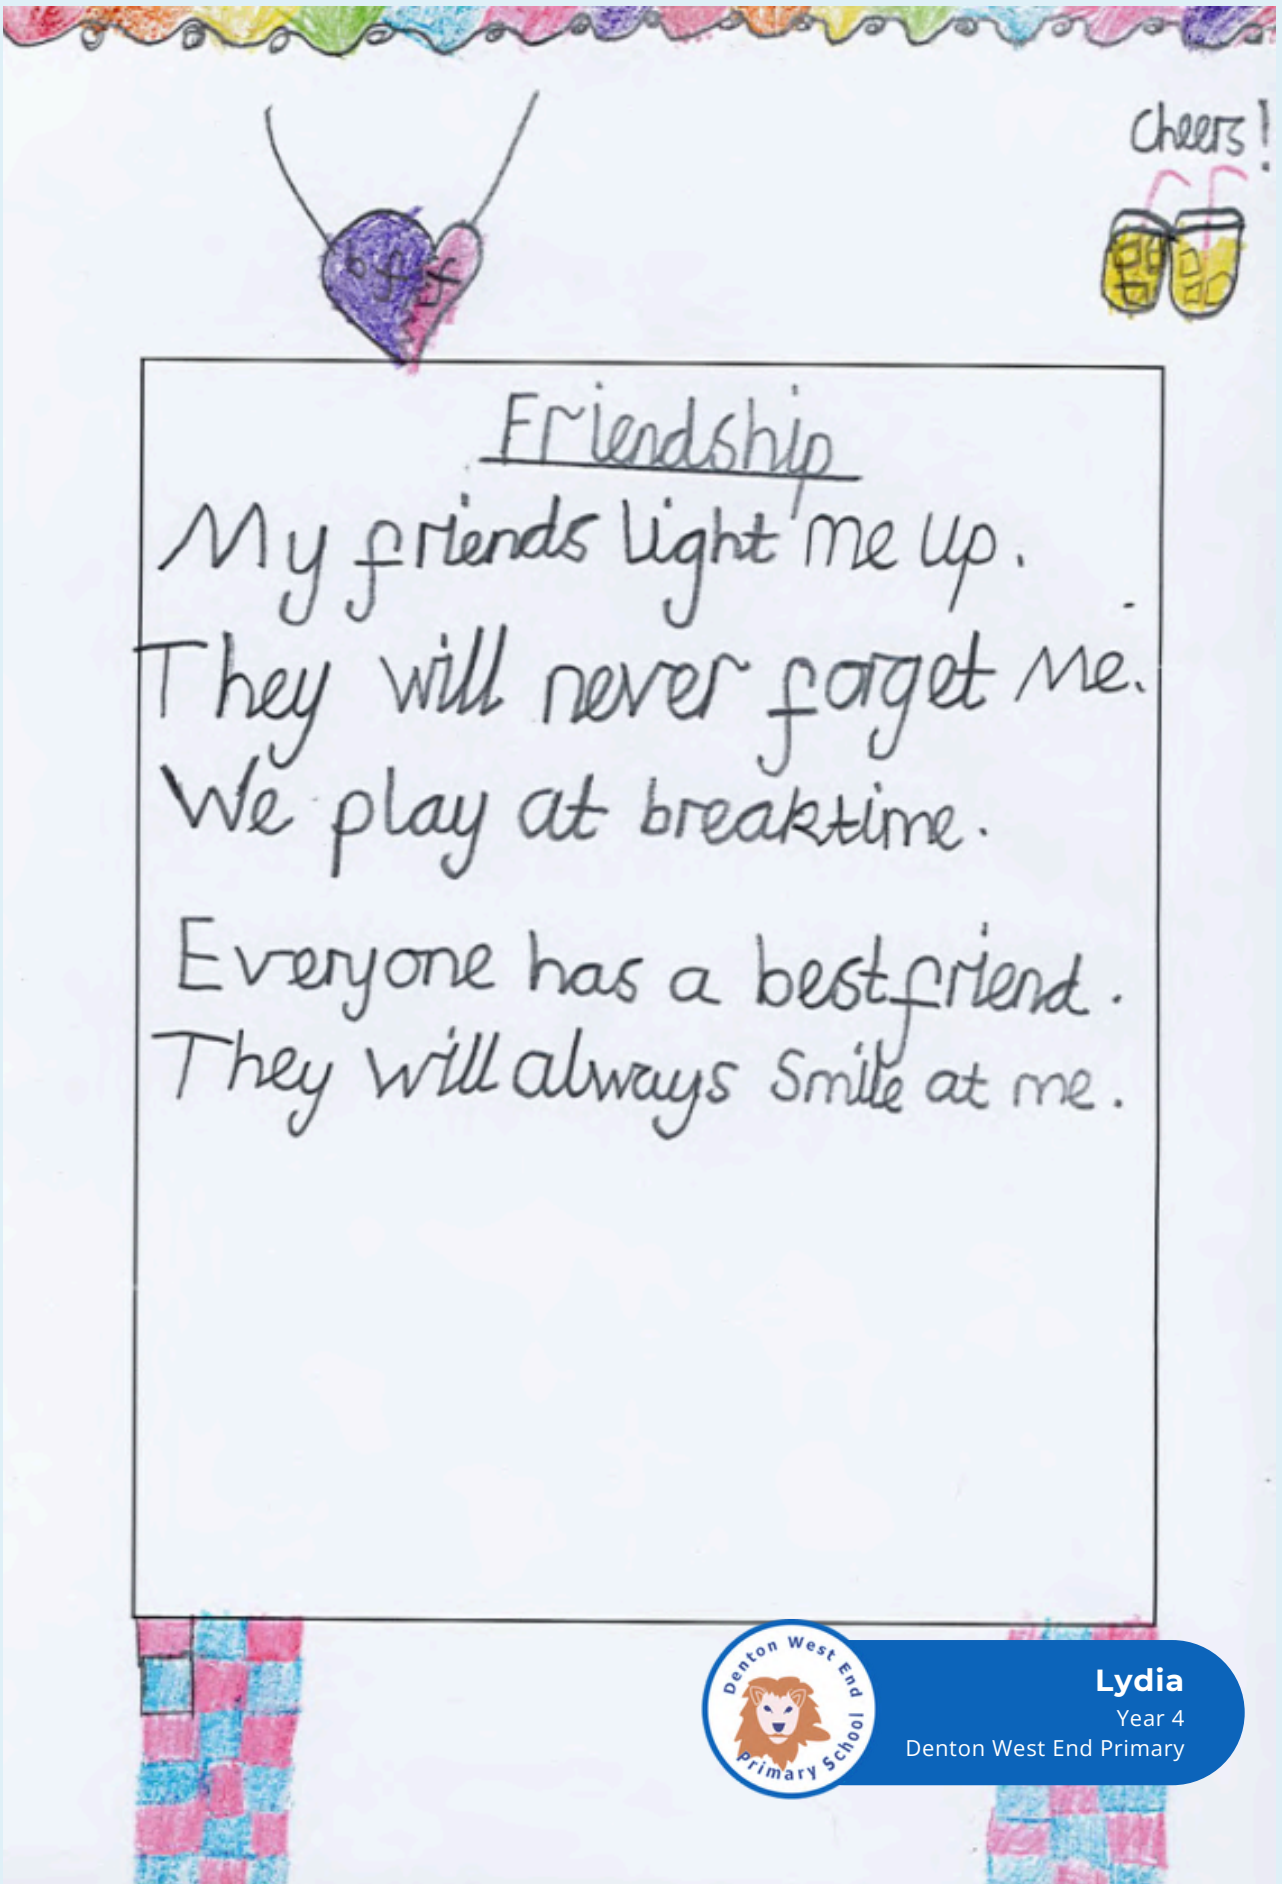 Cheers!
bff
Friendship
My friends light me up.
They will never forget me.
We play at breaktime.
Everyone has a bestfriend.
They will always smile at me.
Denton West End Primary School
Lydia
Year 4
Denton West End Primary